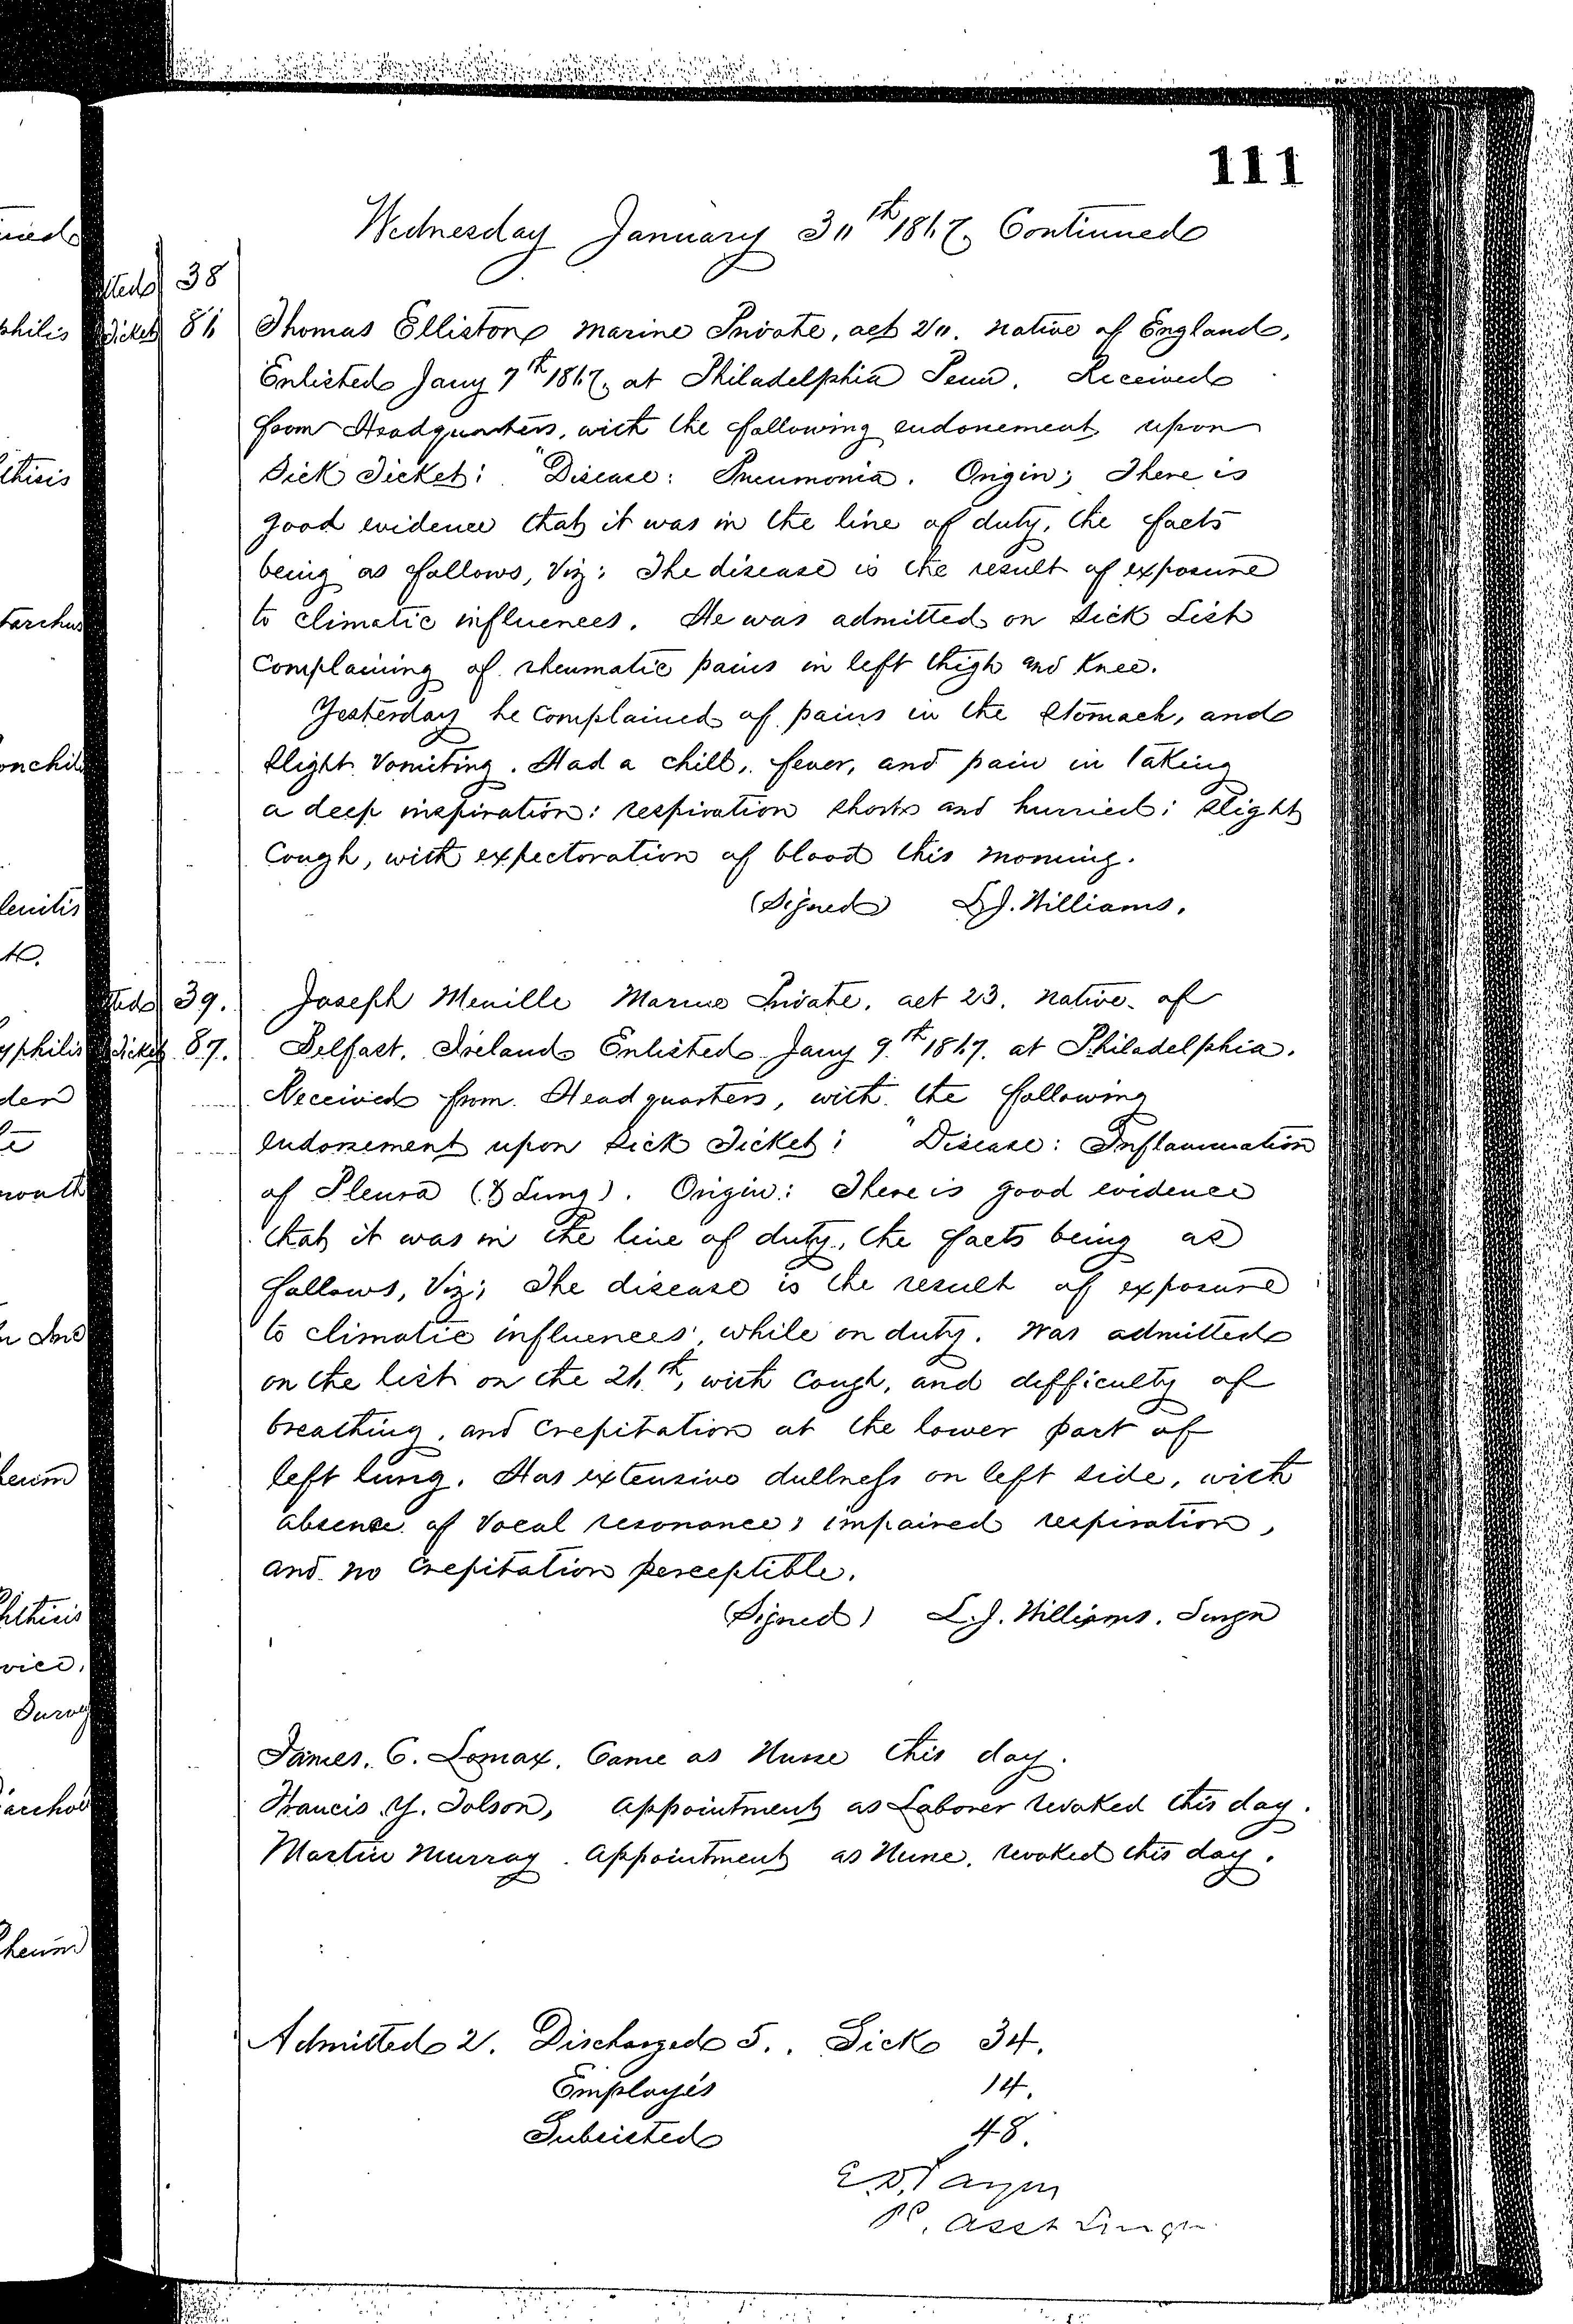 111
Wednesday January 30th 1867, Continued
38
Ticket 86 Thomas Elliston Marine Private, aet 20. native of England,
Enlisted Jany 7th 1867, at Philadelphia Penn. Received
from Headquarters, with the following endorsement upon
Sick Ticket: "Disease: Pneumonia. Origin; There is
good evidence that it was in the line of duty, the facts
being as follows, Viz: The disease is the result of exposure
to climatic influences. He was admitted on Sick List
Complaining of rheumatic pains in left thigh and Knee.
Yesterday he complained of pains in the stomach, and
slight Vomiting. Had a chill, fever, and pain in taking
a deep inspiration: respiration short and hurried: slight
Cough, with expectoration of blood this morning.
(Signed) L.J. Williams.
39. Joseph Menille Marine Private. aet 23. native of
Ticket 87. Belfast. Ireland Enlisted Jany 9th 1867. at Philadelphia.
Received from Head quarters, with the following
endorsement upon Sick Ticket: "Disease: Inflammation
of Pleura (& Lung). Origin: There is good evidence
that it was in the line of duty, the facts being as
follows, Viz; The disease is the result of exposure
to climatic influences, while on duty. Was admitted
on the list on the 26th, with Cough, and difficulty of
breathing, and Crepitation at the lower part of
left lung. Has extensive dullness on left side, with
absence of Vocal resonance, impaired respiration,
and no Crepitation perceptible.
(Signed) L.J. Williams. Surgn
James. C. Lomax. Came as Nurse this day.
Francis Y. Tolson, Appointment as Laborer revoked this day.
Martin Murray. Appointment as Nurse, revoked this day.
Admitted 2. Discharged 5.. Sick 34.
Employés 14.
Subsisted 48.
E.D. Payn
P. Asst Surgn